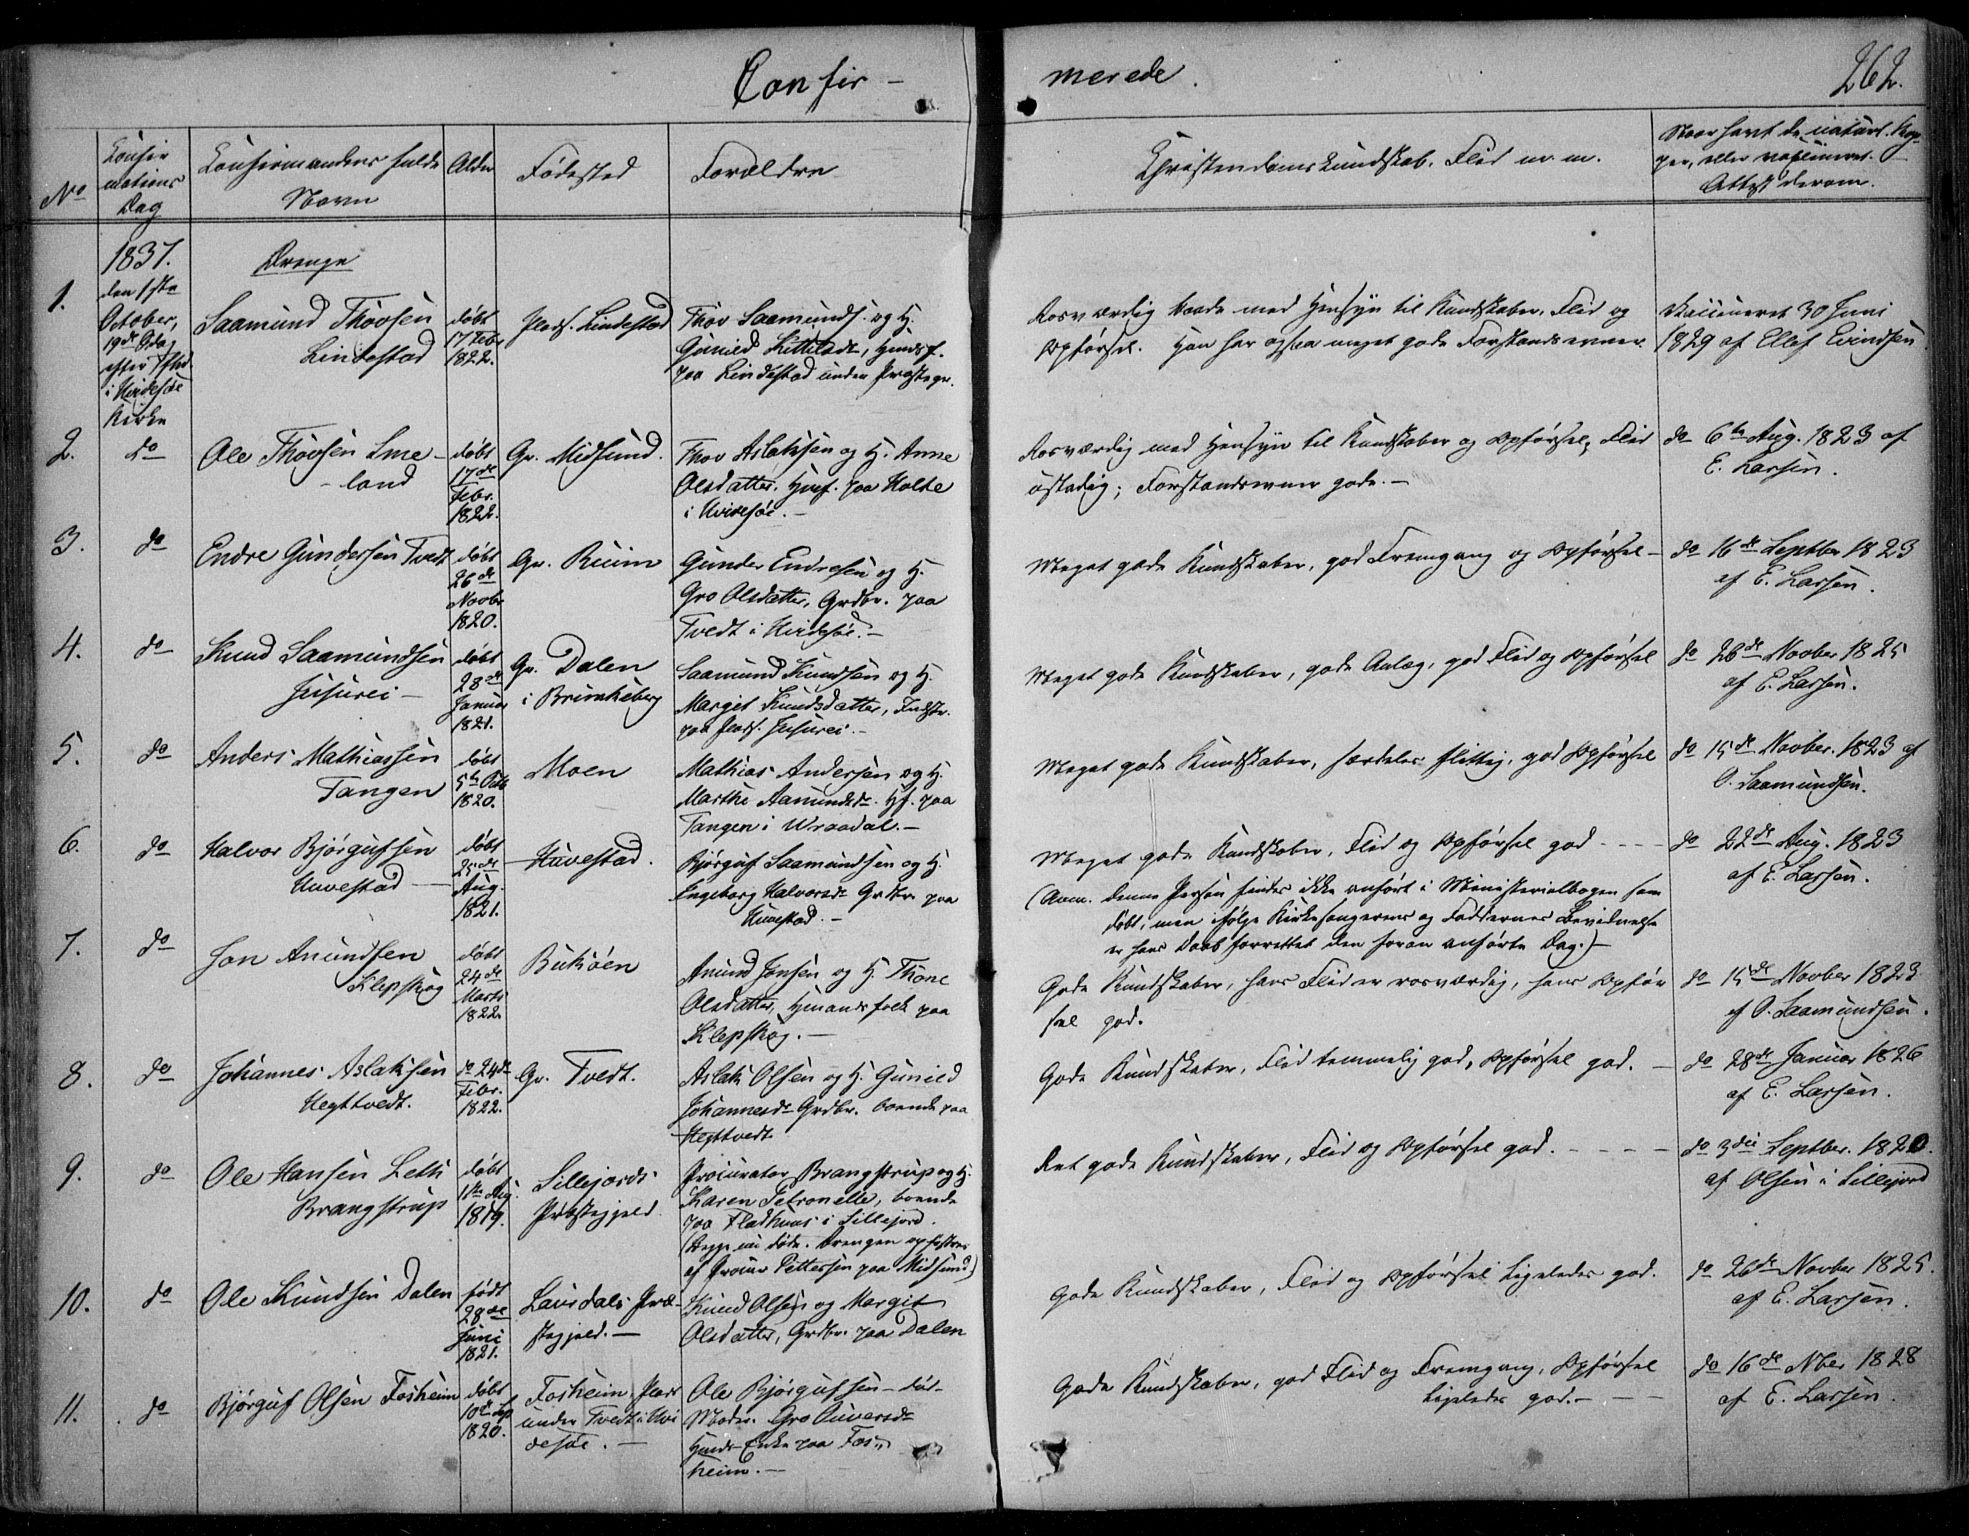 Confir-
merede.
262.
No
Confir
mations
Dag
Confirmandens fulde
Navn
Alder
Fødested
Forældre
Christendomskundskab, Flid m. m.
Naar havt de naturl. Kop-
per, eller vaccineret.
Attest derom.
1837.
Drenge
1.
den 1ste
October,
19de Sdag
efter
i Hvidesøe
Kirke
Saamund Thovsen
Lindestad
døbt
17 Febr
1822.
Plads. Lindestad
Thov Saamunds. og H.
Gunild Kittilsdr, Huusf.
paa Lindestad under Præstegr.
Rosværdig baade med Hensyn til Kundskaber, Flid og
Opførsel. Han har ogsaa meget gode Forstandsevner.
Vaccineret 30 Juni
1829 af Ellef Eivindsen
2.
do
Ole Thovsen Sme-
land
døbt
17de
Febr.
1822.
Gr. Midsund.
Thov Aslaksen og H. Anne
Olsdatter. Huusf. paa Holte
i Hvidesøe.-
Rosværdig med Hensyn til Kundskaber og Opførsel, Flid
ustadig; Forstandsevner gode.-
do 6te Aug. 1823 af
E. Larsen.
3.
do
Endre Gundersen Tvedt
døbt
26de
Novbr
1820.
Gr. Ruim
Gunder Endresen og H.
Gro Olsdatter, Grdbr. paa
Tvedt i Hvidesøe.-
Meget gode Kundskaber, god Fremgang og Opførsel-
do 16de Septbr 1823
af E. Larsen.
4.
do
Knud Saamundsen
Jusurei-
døbt
28de
Januar
1821.
Gr. Dalen
i Brunkeberg
Saamund Knudsen og H.
Margit Knudsdatter, Indstr.
paa Plads. Jusurei.-
Meget gode Kundskaber, gode Anlæg, god Flid og Opførsel
do 26de Novber 1825
af E. Larsen.
5.
do
Anders Mathiassen
Tangen
døbt
5te Octb
1820.
Moen
Mathias Andersen og H.
Marthe Aamundsdr. Hf. paa
Tangen i Wraadal.-
Meget gode Kundskaber, særdeles flittig, god Opførsel
do 15de Novber. 1823 af
O. Saamundsen.
6.
do
Halvor Bjørgufsen
Huvestad-
døbt
25de
Aug.
1821.
Huvestad.
Bjørguf Saamundsen og H.
Engeborg Halvorsdr Grdbr. paa
Huvestad.-
Meget gode Kundskaber, Flid og Opførsel god - - - -
(Anm. denne Person findes ikke anført i Ministerialbogen som
døbt, men ifølge Kirkesangerens og Faddernes Bevidnelse
er hans Daab forrettet den foran anførte Dag.)-
do 22de Aug. 1823
af E. Larsen.
7.
do
Jon Anundsen
Klepskog
døbt
24de
Marts
1822.
Bukøen
Anund Jonsen og H. Thone
Olsdatter, Huusmandsfolk paa
Klepskog.-
Gode Kundskaber, hans Flid er rosværdig, hans Opfør
sel god.
do 15de Novber 1823
af O. Saamundsen.
8.
do
Johannes Aslaksen
Hegttvedt.
do 24de
Febr.
1822.
Gr. Tvedt.
Aslak Olsen og H. Gunild
Johannesdr Grdbr. boende paa
Hegttvedt
Gode Kundskaber, Flid temmelig god, Opførsel god.-
do 28de Januar 1826
af E. Larsen.
9.
do
Ole Hansen Leth
Brangstrup
døbt
1ste Aug.
1819.
Sillejords
Præstegjeld.
Procurator Brangstrup og H.
Karen Petronelle, boende
paa Fladhuus i Sillejord.
(Begge nu døde. Drengen opfostres
af Procur Pettersen paa Midsund)
Ret gode Kundskaber, Flid og Opførsel god. - - - -
do 3die Septber. 1820.
af Olsen i Sillejord
10.
do
Ole Knudsen Dalen
født
28de
Juni
1821.
Laurdals Præ-
stegjeld.-
Knud Olsen og Margit
Olsdatter, Grdbr. paa Dalen
Gode Kundskaber, Flid og Opførsel ligeledes god.
do 26de Novber 1825.
af E. Larsen.
11.
do
Bjørguf Olsen Fosheim
døbt
10de Sep
1820.
Fosheim Plads
under Tvedt i Hvi
desøe.-
Ole Bjørgufsen- død-
Moder. Gro Gunersdr
Huusm. Enke paa Fos-
heim.-
Gode Kundskaber, god Flid og Fremgang, Opførsel
ligeledes god.- - -
do 16de Nber 1828
af E. Larsen.